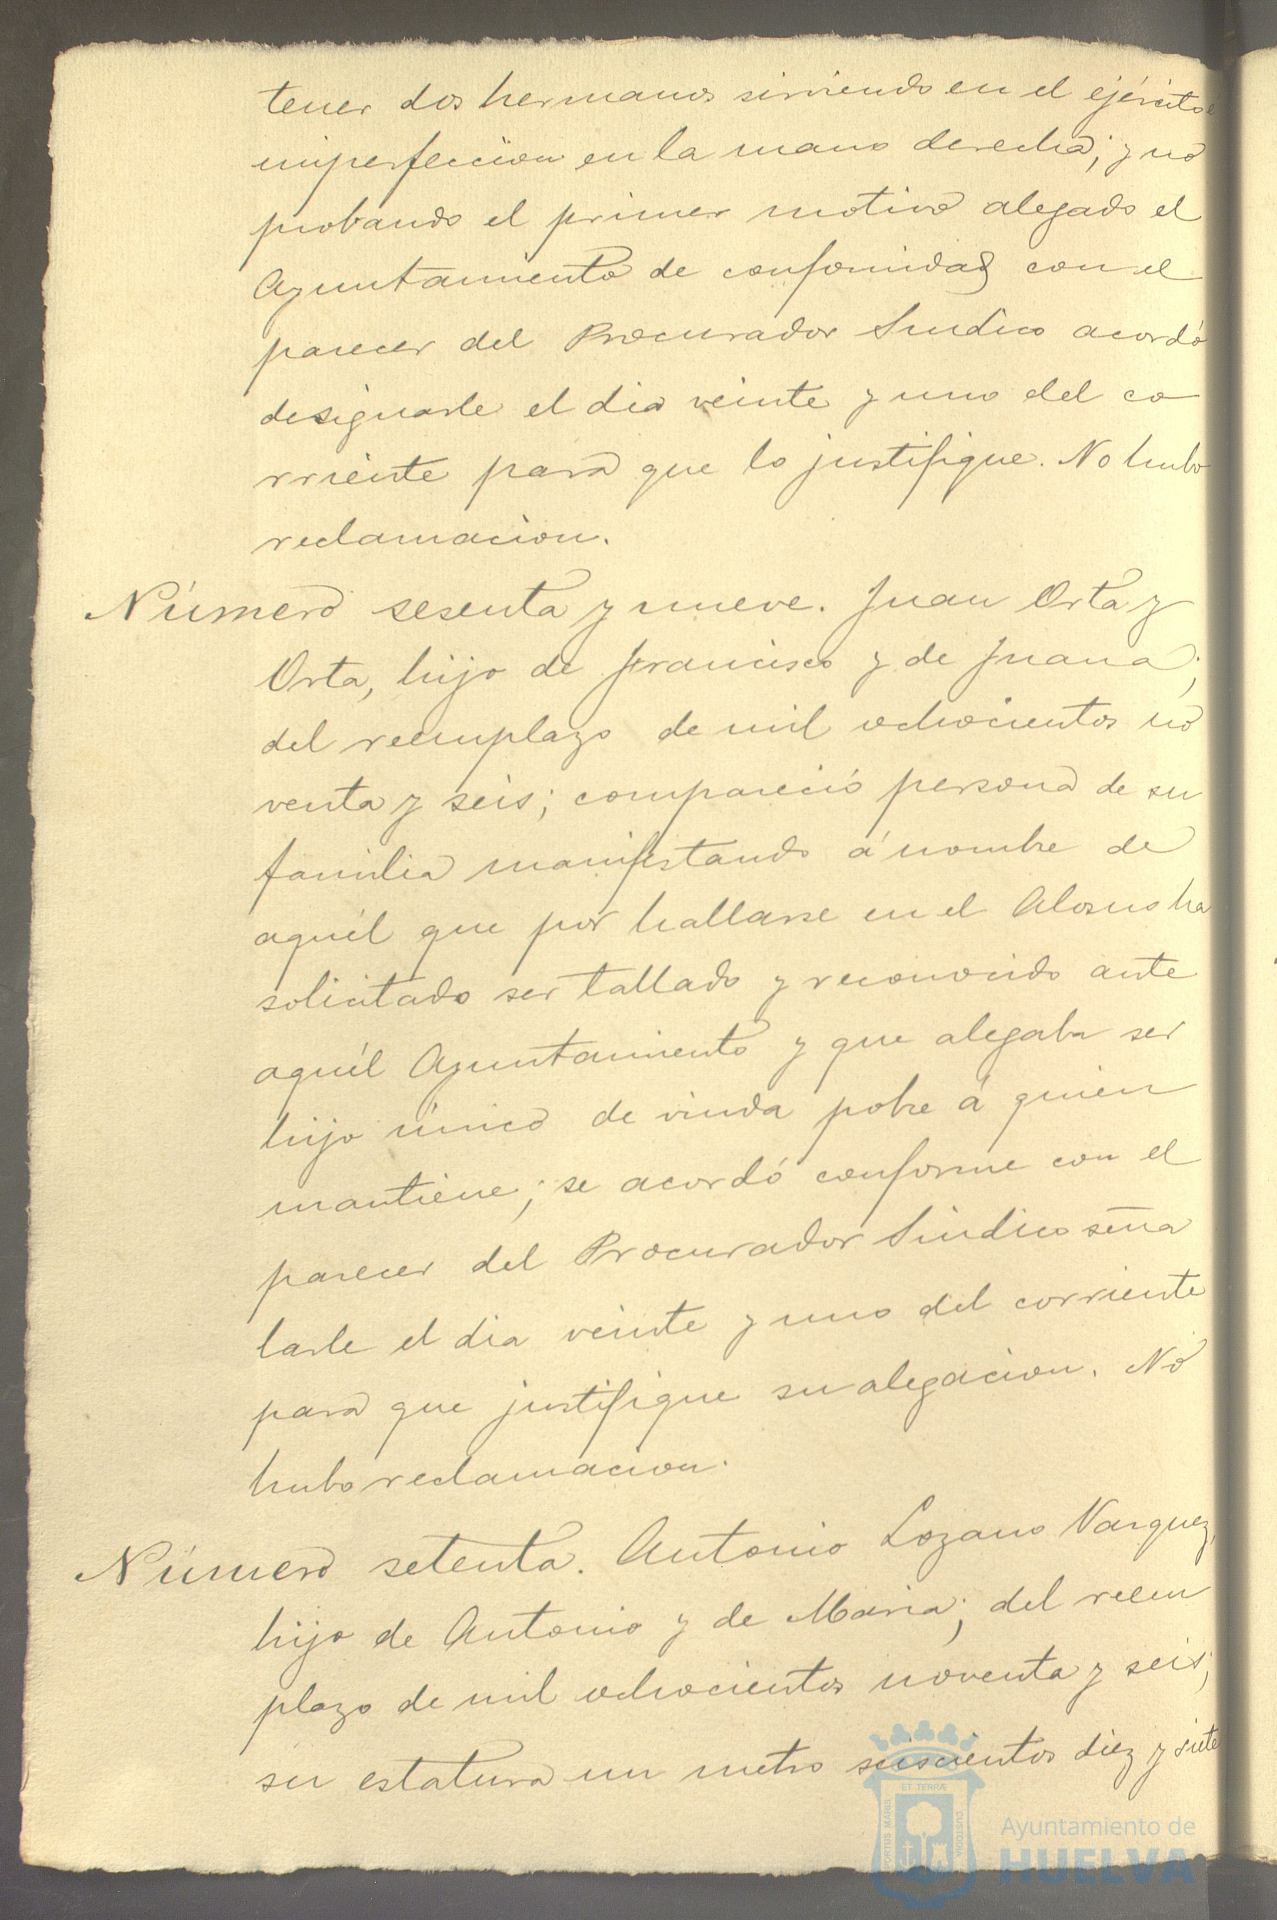 tener dos hermanos sirviendo en el ejército é
imperfeccion en la mano derecha; y no
probando el primer motivo alegado el
Ayuntamiento de conformidad con el
parecer del Procurador Sindico acordó
designarle el dia veinte y uno del co
rriente para que lo justifique. No hubo
reclamacion.
Número sesenta y nueve. Juan Orta y
Orta, hijo de Francisco y de Juana;
del reemplazo de mil ochocientos no
venta y seis; compareció persona de su
familia manifestando á nombre de
aquél que por hallarse en el Alosno ha
solicitado ser tallado y reconocido ante
aquél Ayuntamiento y que alegaba ser
hijo único de viuda pobre á quien
mantiene; se acordó conforme con el
parecer del Procurador Sindico seña
larle el dia veinte y uno del corriente
para que justifique su alegacion. No
hubo reclamacion.
Número setenta. Antonio Lozano Vasquez,
hijo de Antonio y de Maria; del reem
plazo de mil ochocientos noventa y seis;
su estatura un metro seiscientos diez y siete
ET TERRÆ
PORTUS MARIS
CUSTODIA
Ayuntamiento de
HUELVA